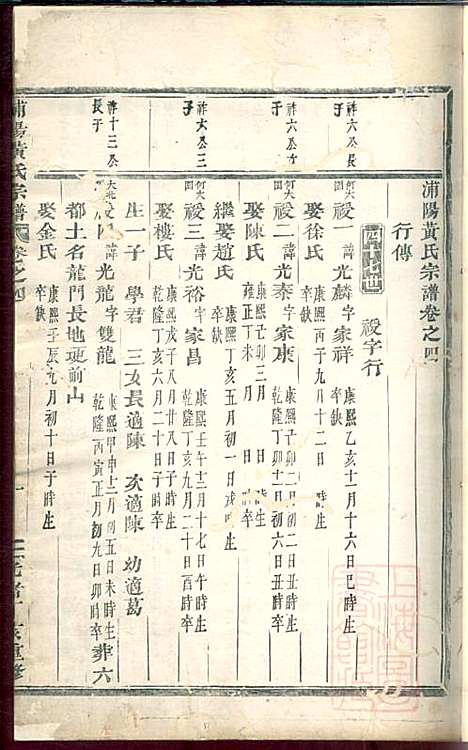 浦陽黃氏宗譜卷之四
行傳
祋字行
祚六公長子
祋一 諱光麟字家祥 康熙乙亥十月十六日巳時生 卒缺
娶徐氏 康熙丙子九月十二日 時生 卒缺
祚六公次子
祋二 諱光泰字家東 康熙己卯二月初二日丑時生 乾隆丁卯十二月初六日丑時卒
娶陳氏 康熙己卯三月 日 時生 雍正丁未 日 時卒
繼娶趙氏 康熙丁亥五月初一日戌時生 卒缺
祚六公三子
祋三 諱光裕字家昌 康熙壬午十二月十七日午時生 乾隆丁亥九月二十日酉時卒
娶樓氏 康熙戊子八月廿八日子時生 乾隆丁亥六月二十日子時卒
生一子 學君 三女長適陳 次適陳 幼適葛
祚十三公長子
諱光龍字雙龍 康熙甲申十二月初五日未時生 乾隆丙寅正月初九日卯時卒 葬六
都土名龍門長地硬前山
娶金氏 康熙壬辰九月初十日子時生 卒缺
浦陽黃氏宗譜 卷之四
一
重修